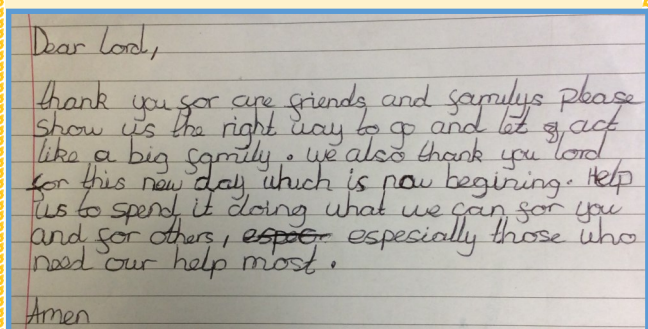 Dear Lord,
thank you for are friends and familys please
show us the right way to go and let act
like a big family. we also thank you lord
for this new day which is now begining. Help
us to spend it doing what we can for you
and for others, espesially those who
need our help most.
Amen